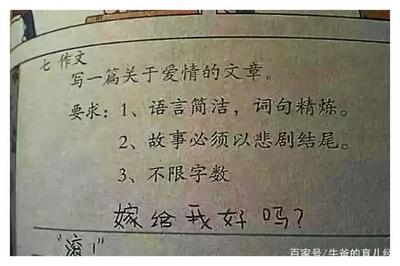 七 作文
写一篇关于爱情的文章。
要求：1、语言简洁，词句精炼。
2、故事必须以悲剧结尾。
3、不限字数
嫁给我好吗？
"滚！"
百家号/牛爸的育儿经